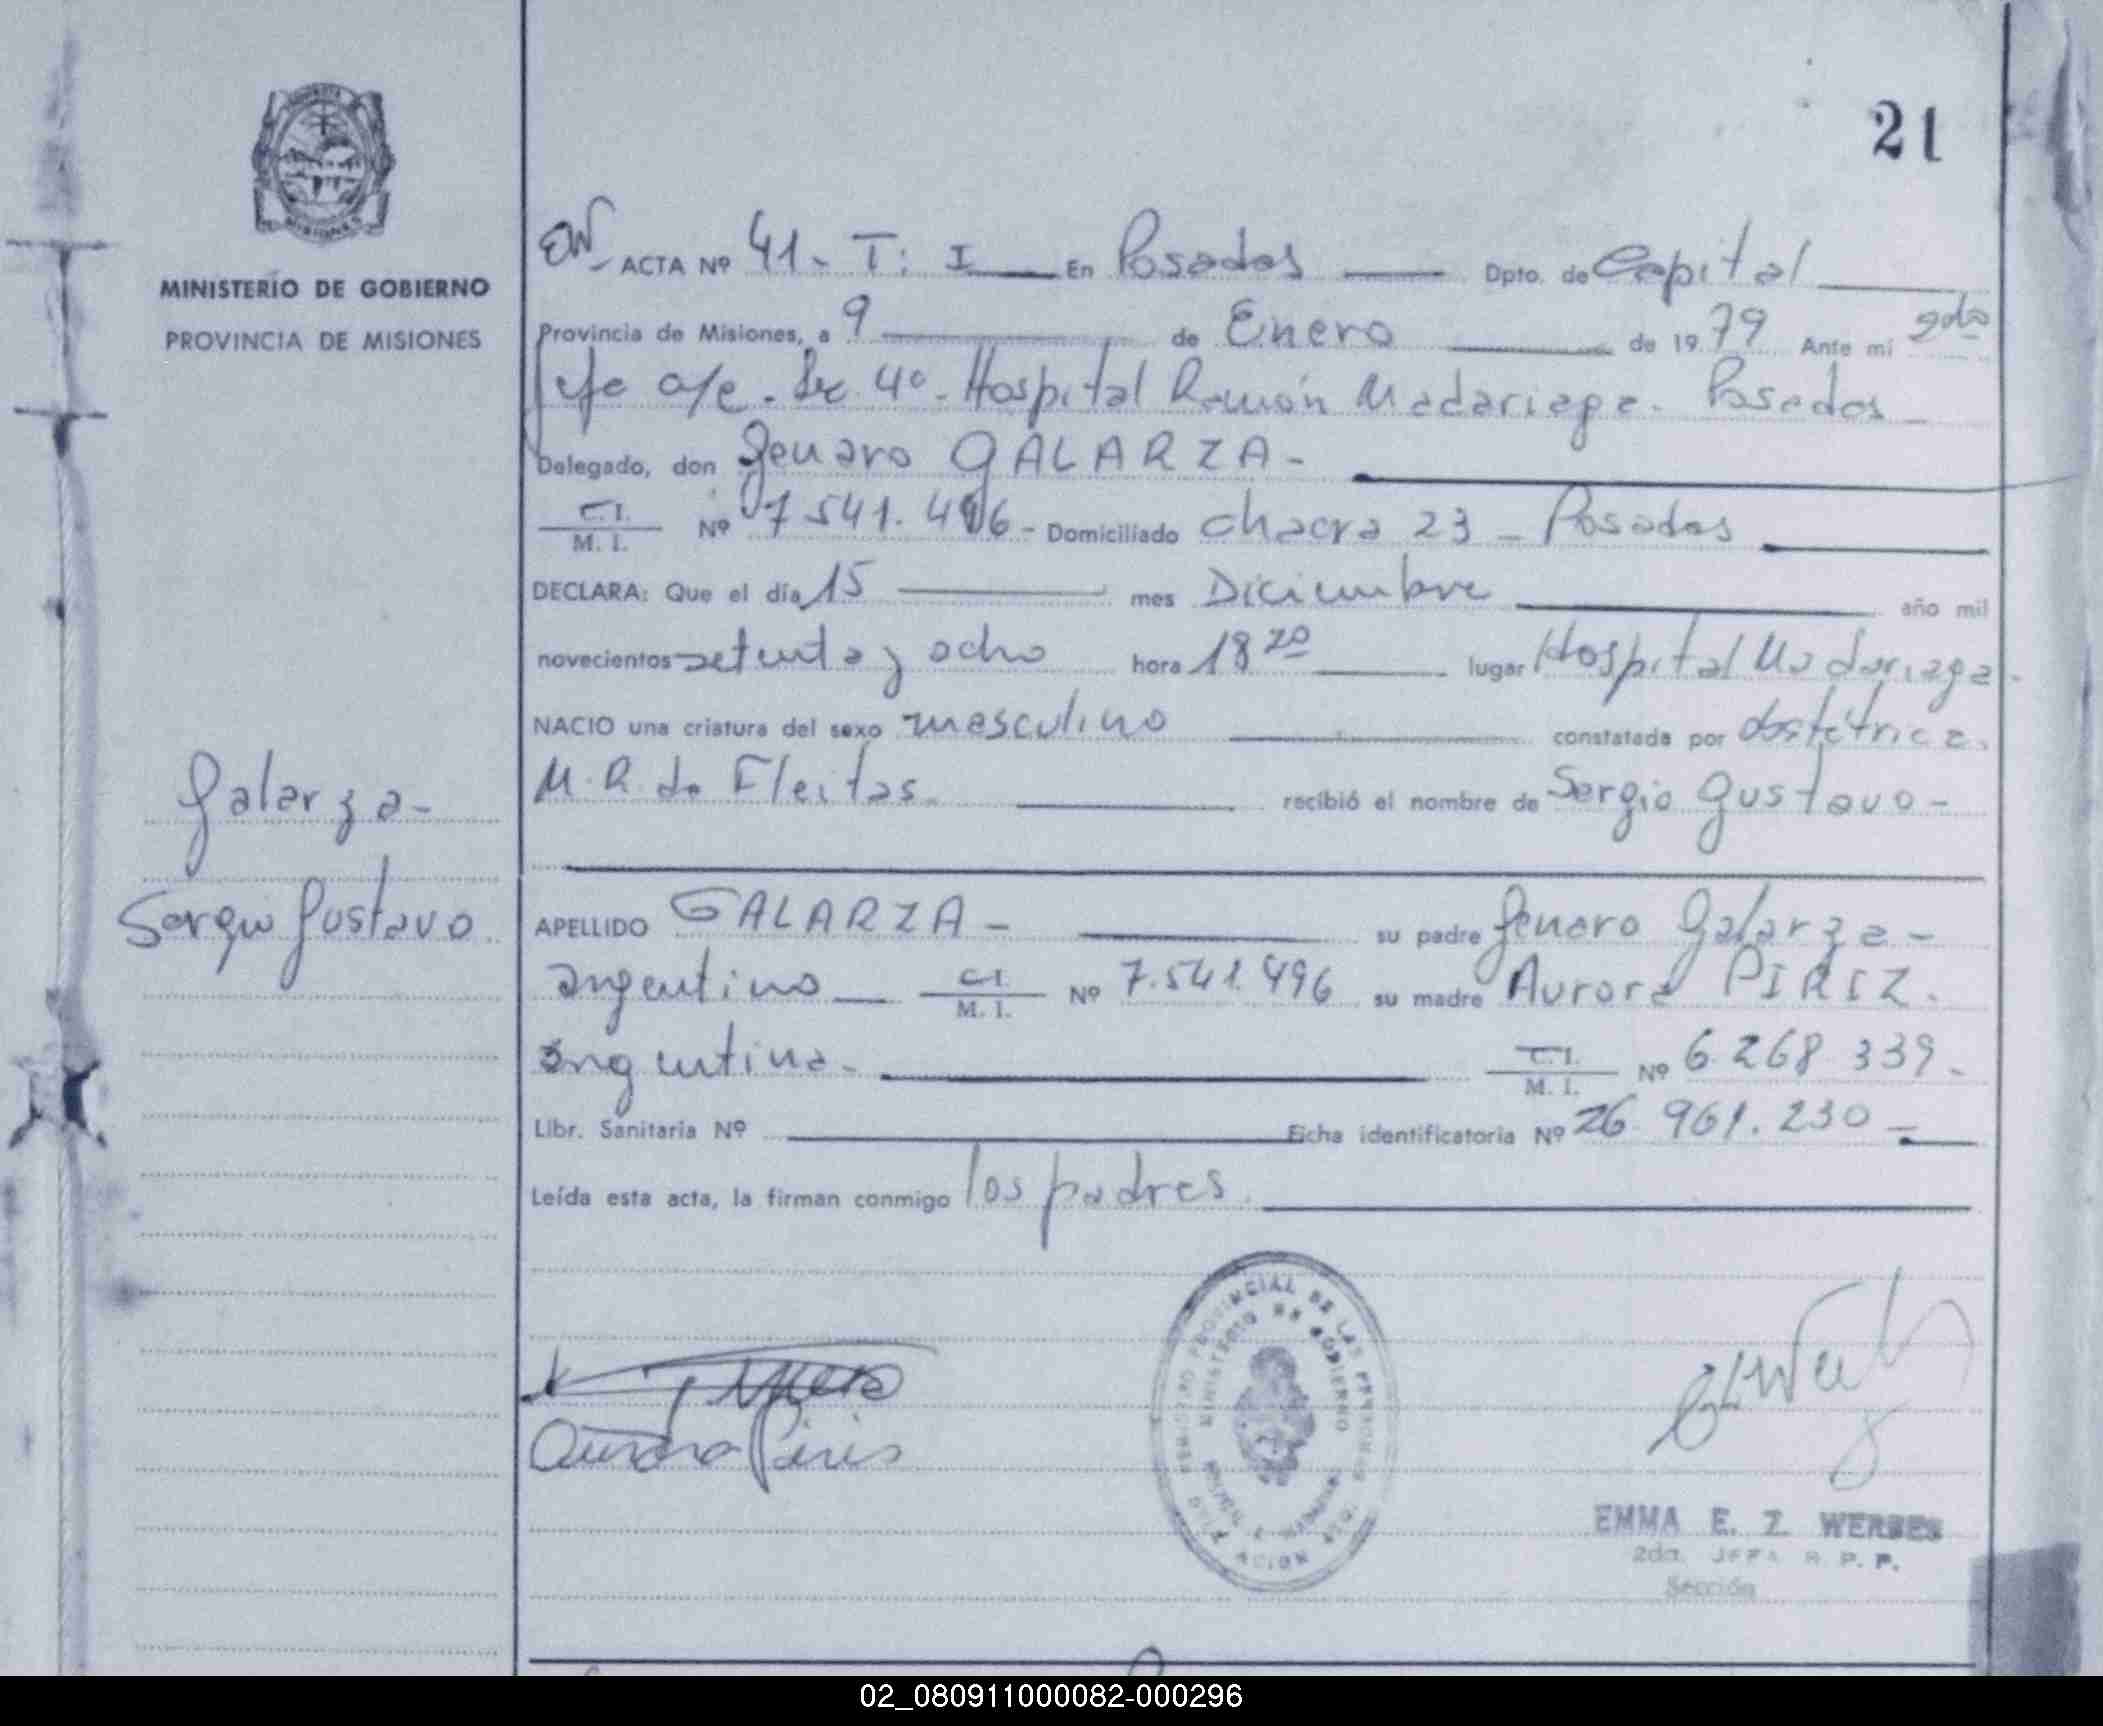 21
MINISTERIO DE GOBIERNO
PROVINCIA DE MISIONES
ACTA Nº 41 - T: I En Posadas Dpto. de Capital
Provincia de Misiones, a 9 de Enero de 1979 Ante mi 2da
Jefe a/c. Sec 4º - Hospital Ramón Madariaga. Posadas
Delegado, don Genaro GALARZA -
C.I.
M. I. Nº 7.541.496 - Domiciliado chacra 23 - Posadas
DECLARA: Que el día 15 mes Diciembre año mil
novecientos setenta y ocho hora 18 20 lugar Hospital Madariaga -
NACIO una criatura del sexo masculino constatada por obstétrica.
M. R. de Fleitas. recibió el nombre de Sergio Gustavo -
Galarza -
Sergio Gustavo
APELLIDO GALARZA - su padre Genaro Galarza -
argentino C.I.
M. I. Nº 7.541.496 su madre Aurora PIRIZ.
argentina - C.I.
M. I. Nº 6.268.339 -
Libr. Sanitaria Nº Ficha identificatoria Nº 26.961.230 -
Leída esta acta, la firman conmigo los padres.
Aurora Piris
PROVINCIAL DE LAS PERSONAS
MINISTERIO DE GOBIERNO
EMMA E. Z. WERBES
2da. JEFA R. P. P.
Sección
02_080911000082-000296